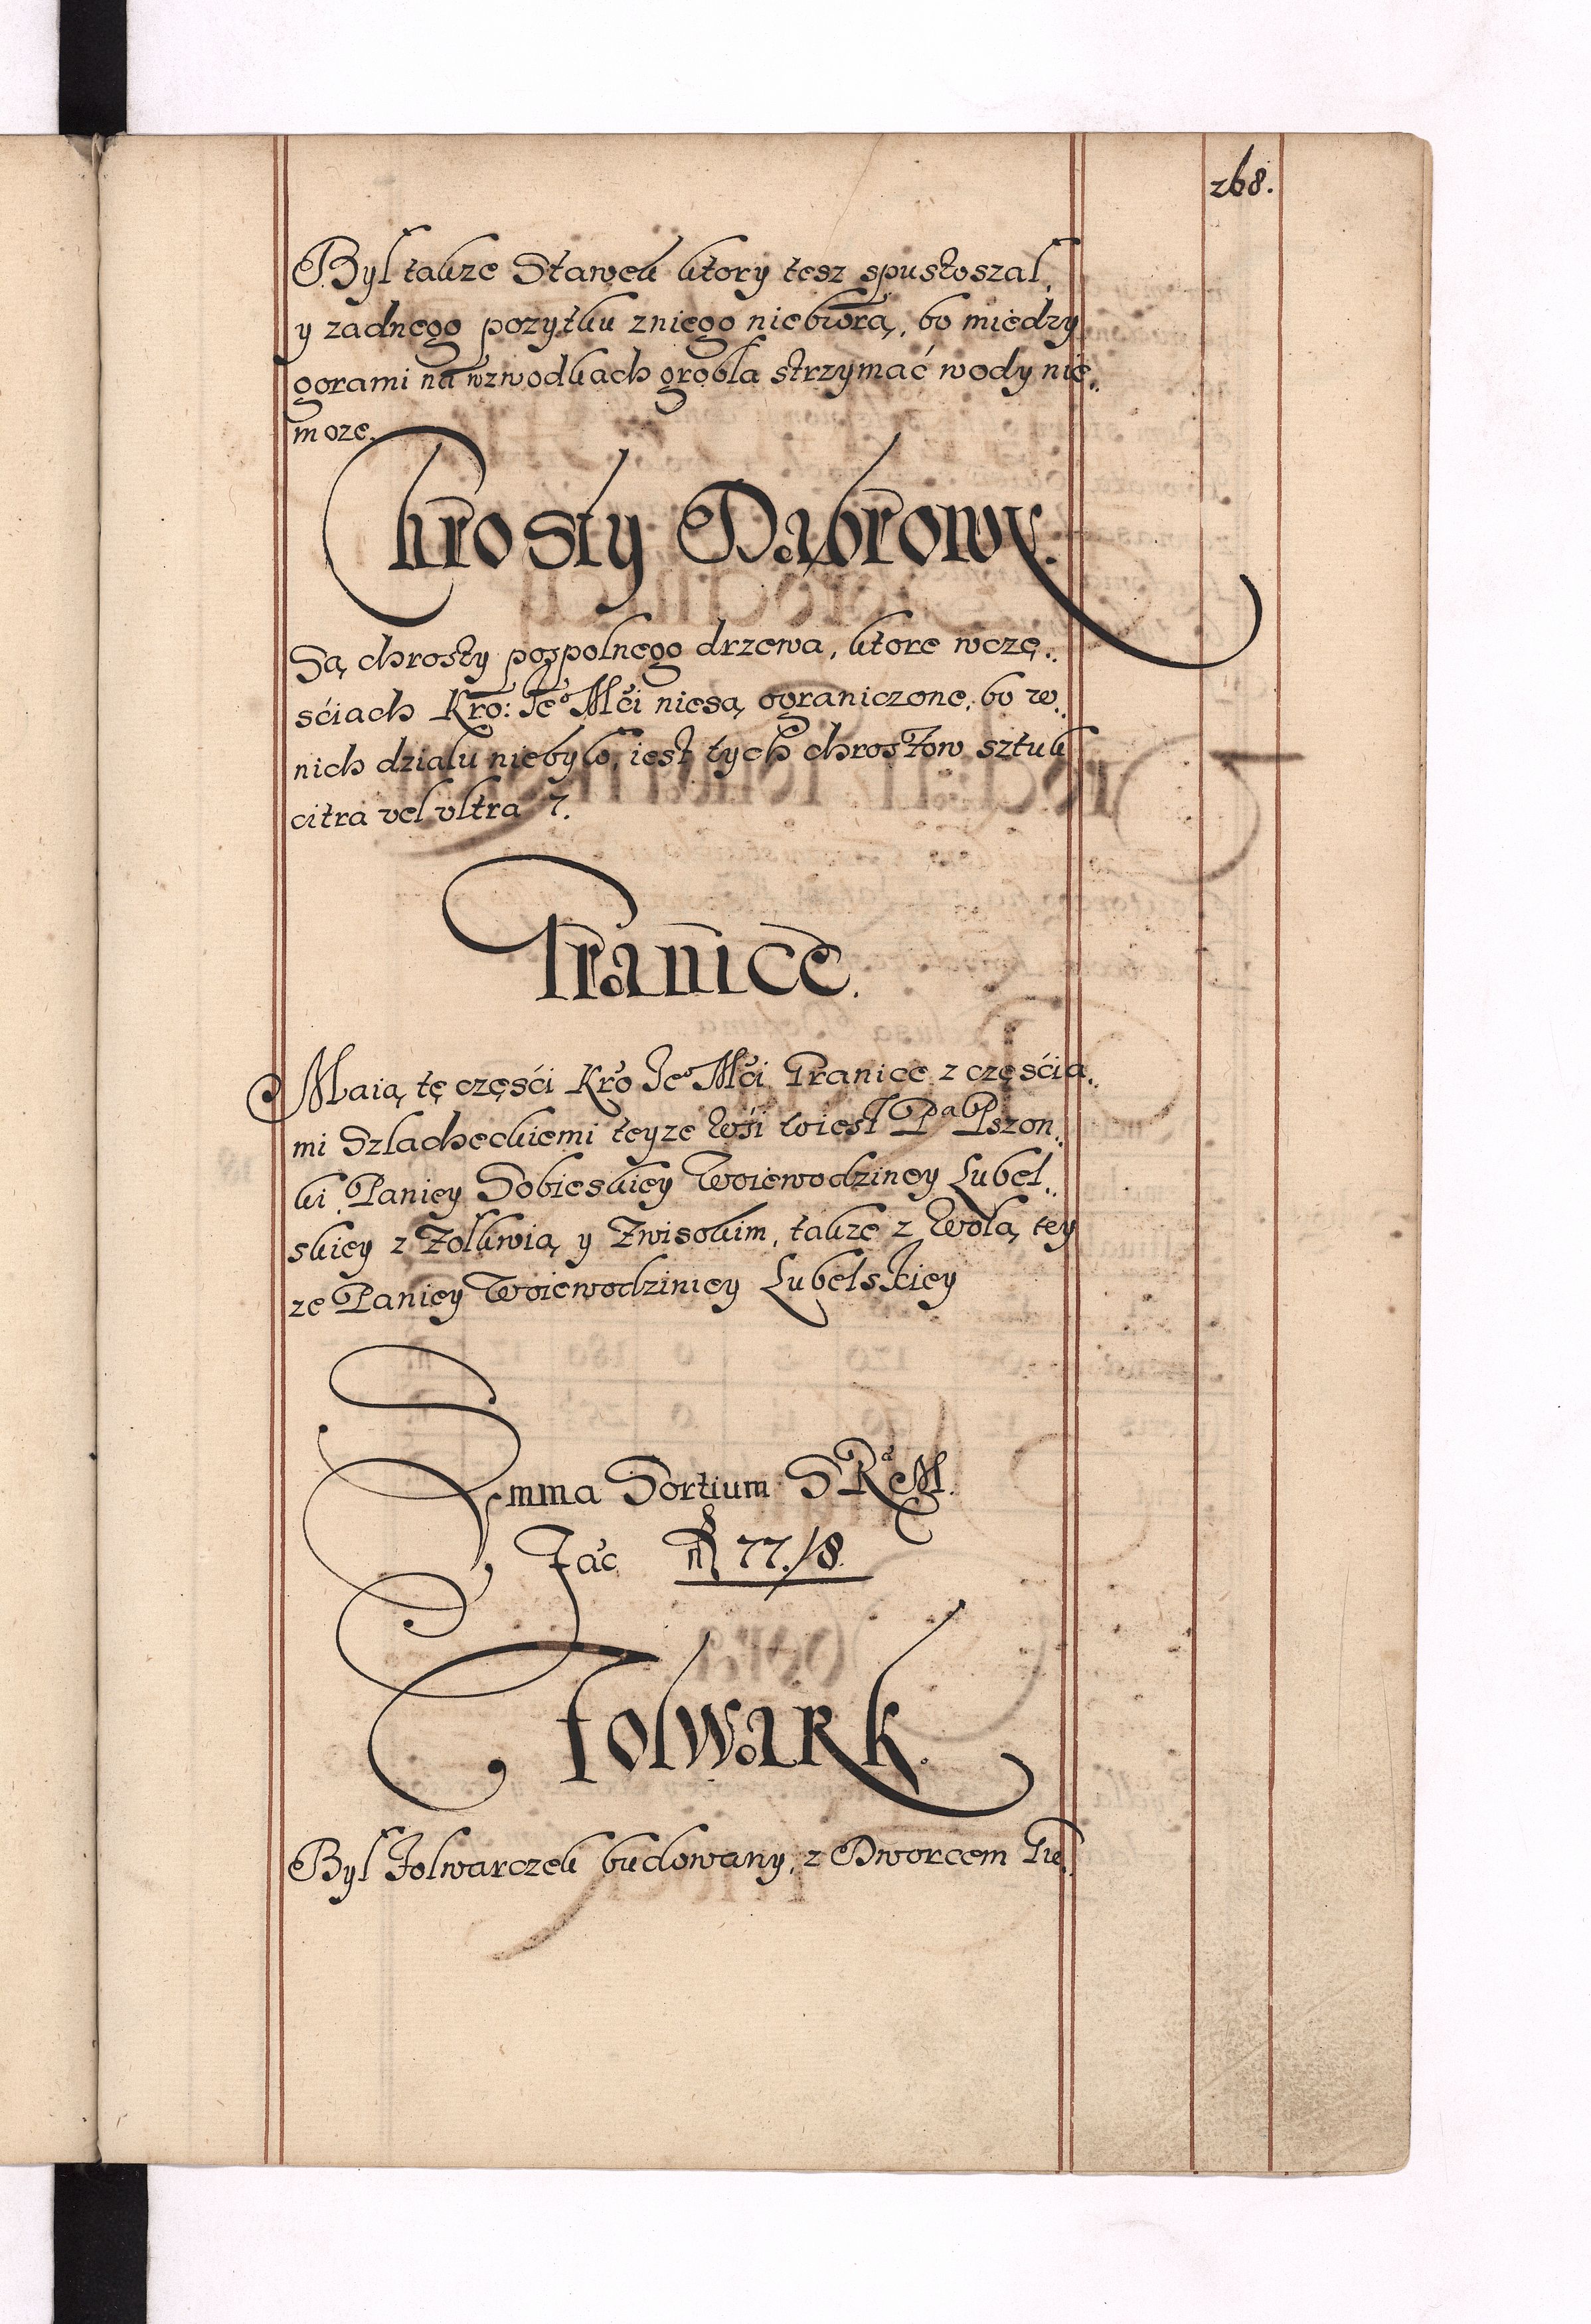 268.
Byl takze Stawek ktory tesz spustoszal,
y zadnego pozytku zniego niebiorą, bo miedzy
gorami na wzwodkach grobla strzymać wody nie„
moze.
Chrosty Dąbrowy.
Są chrosty pospolnego drzewa, ktore wczę„
sciach Kro: Je° Mći niesą ograniczone, bo w„
nich dzialu niebylo, iest tych chrostow sztuk
citra vel vltra 7.
Granice.
Maią tę częsći Kro Je° Mći Granice z częsćia„
mi Szlacheckiemi teyze Wśi to iest Pa Pszon„
ki Paniey Sobieskiey Woiewodziney Lubel„
skiey z Zolkwią y Zwisokim, takze z Wolą tey
ze Paniey Woiewodziniey Lubelskiey
Summa Sortium S R M.
Fać 77./8.
Folwark.
Byl Folwarczek budowany, z Dworcem